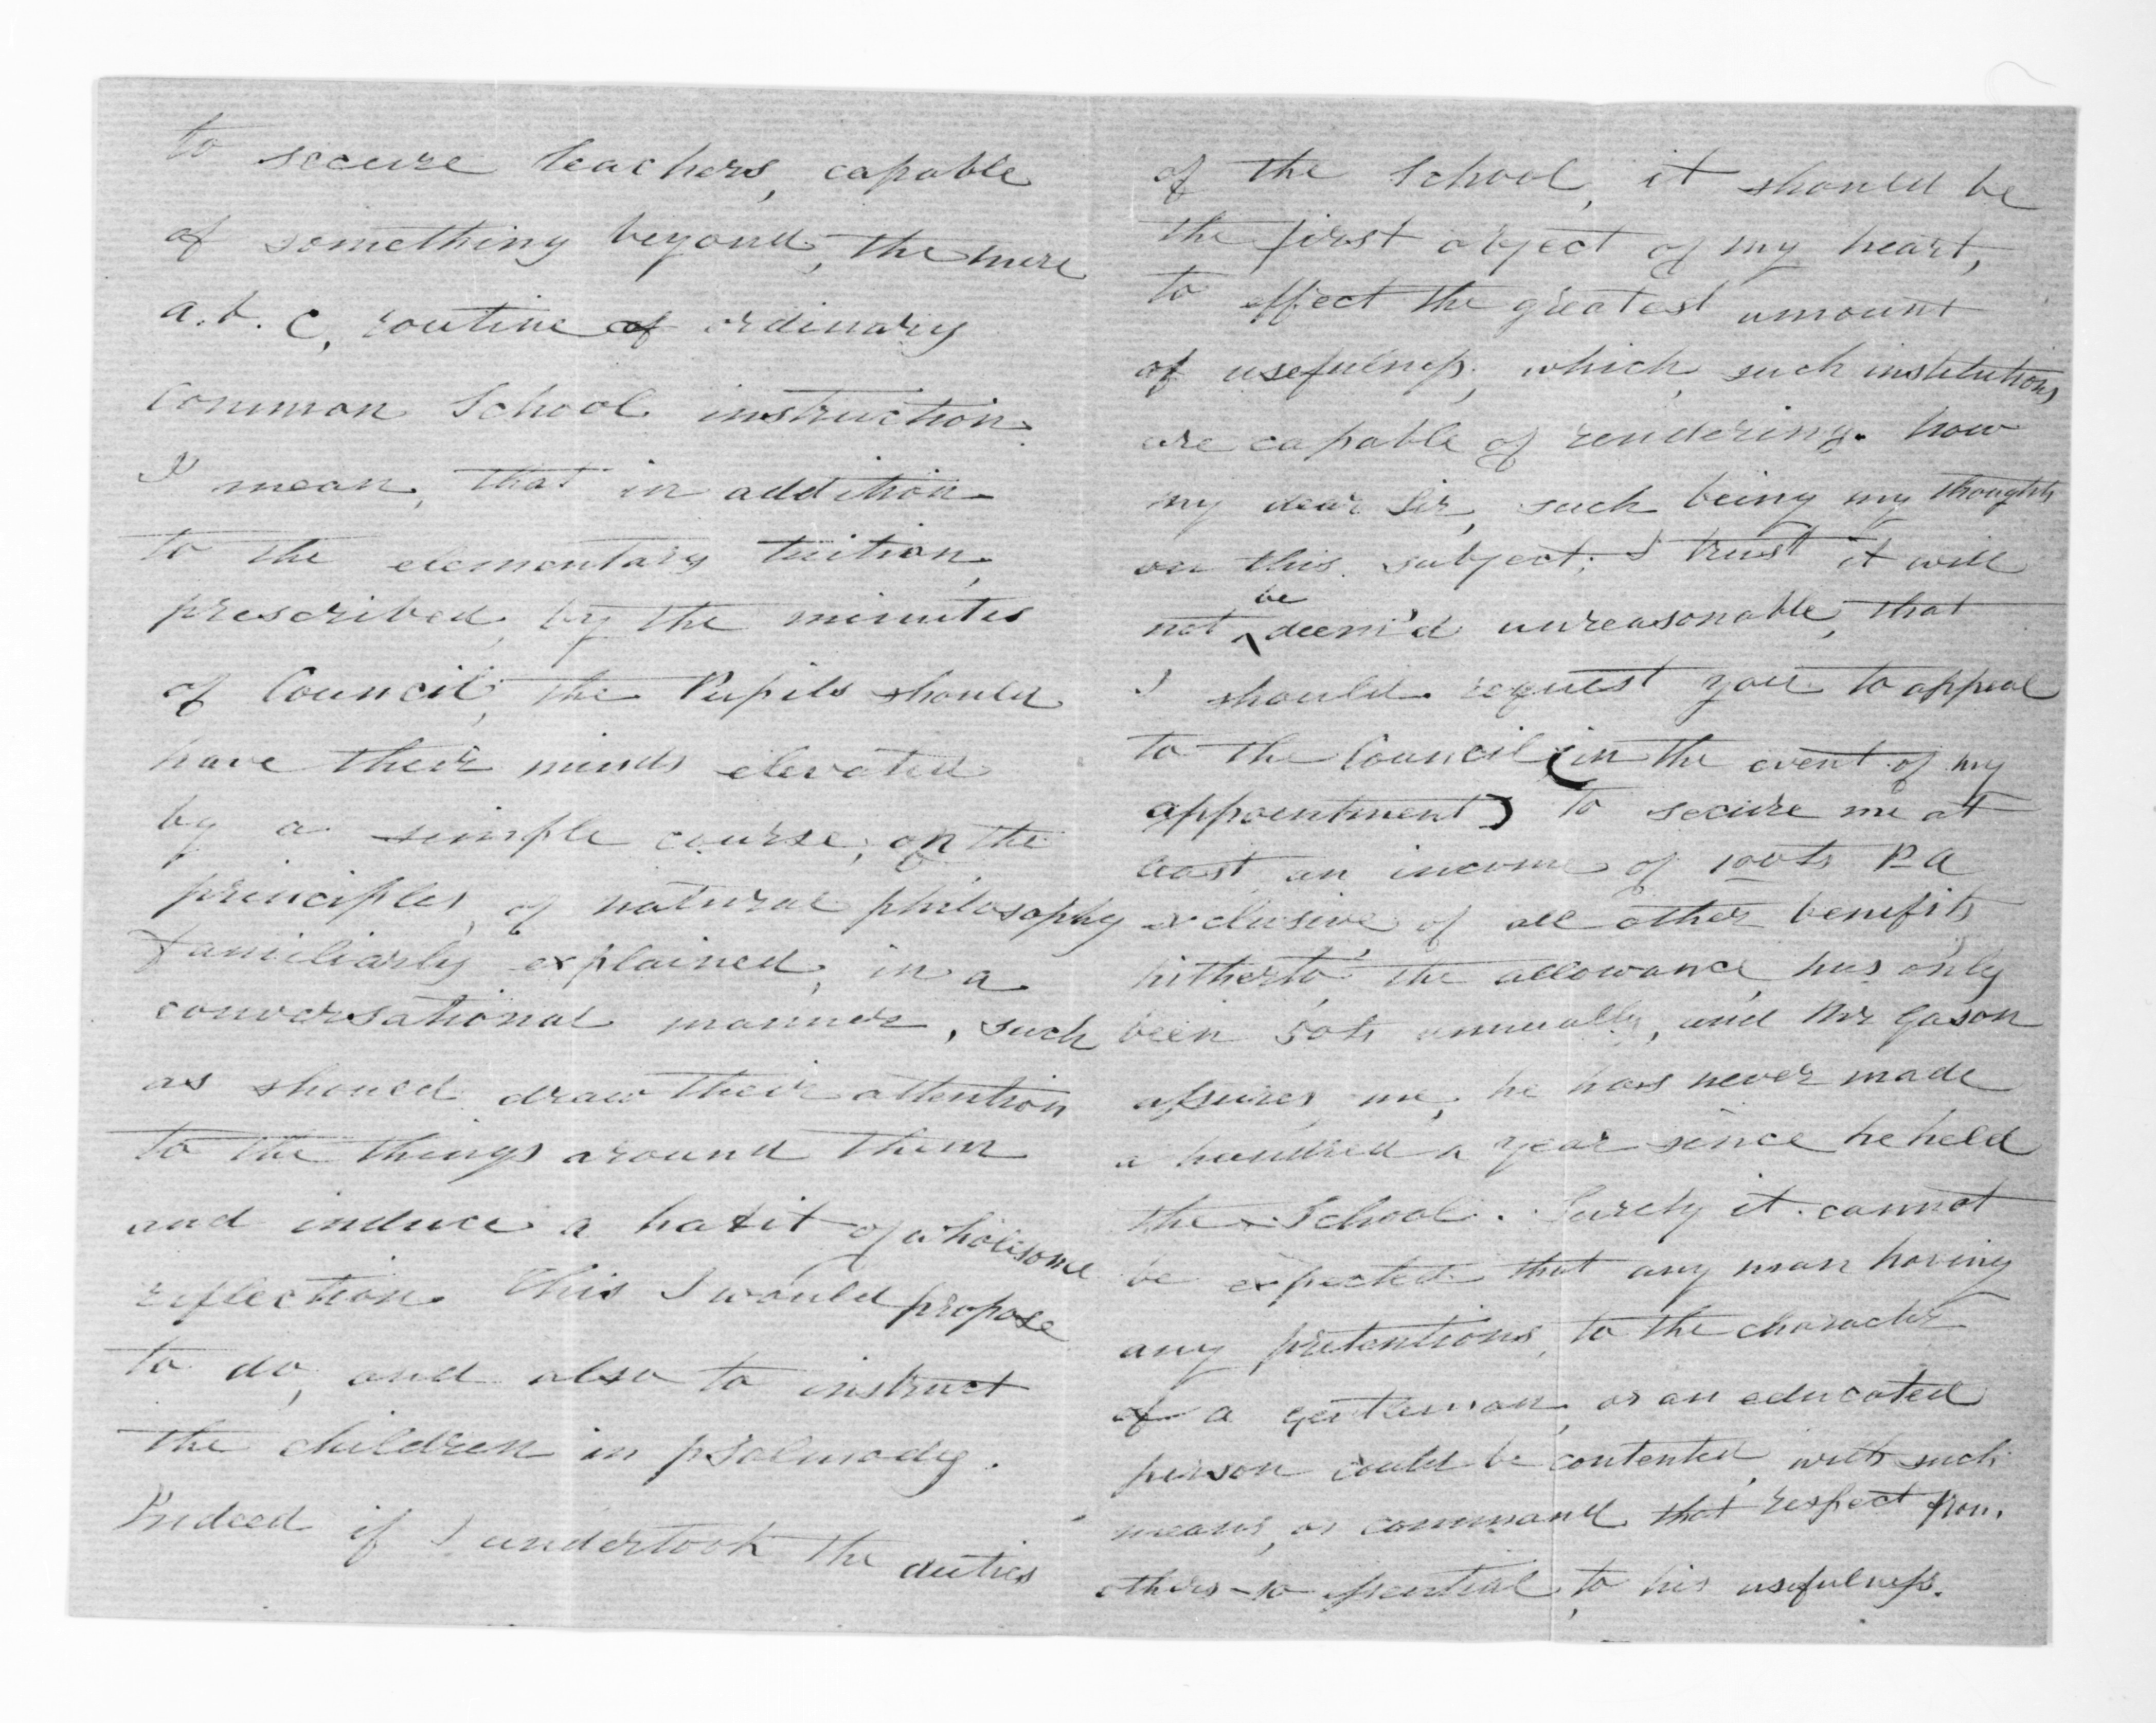 to secure teachers, capable
of something beyond, the mere
a. b. c, routine of ordinary
common School instruction.
I mean, that in addition
to the elementary tuition,
prescribed, by the minutes
of Council, the Pupils should
have their minds elevated
by a simple course, on the
principles, of natural philosophy
familiarly explained, in a
conversational manner, such
as should draw their attention
to the things around them
and induce a habit of wholesome
reflection. This I would propose
to do, and also to instruct
the children in psalmody.
Indeed if I undertook the duties
of the School, it should be
the first object of my heart,
to effect the greatest amount
of usefulness, which, such institutions
are capable of rendering. how
my dear Sir, such being my thoughts
on this subject; I trust it will
not be deem'd unreasonable, that
I should request you to appeal
to the Council (in the event of my
appointment) to secure me at
least an income of 100£ P A
exclusive of all other benefits
hitherto, the allowance, has only
been 50£ annually, and Mr Gason
assures me, he has never made
a hundred a year since he held
the School. Surely it cannot
be expected that any man having
any pretentions, to the character
of a gentleman, or an educated
person could be contented, with such
means, or command that respect from
others so essential, to his usefulness.